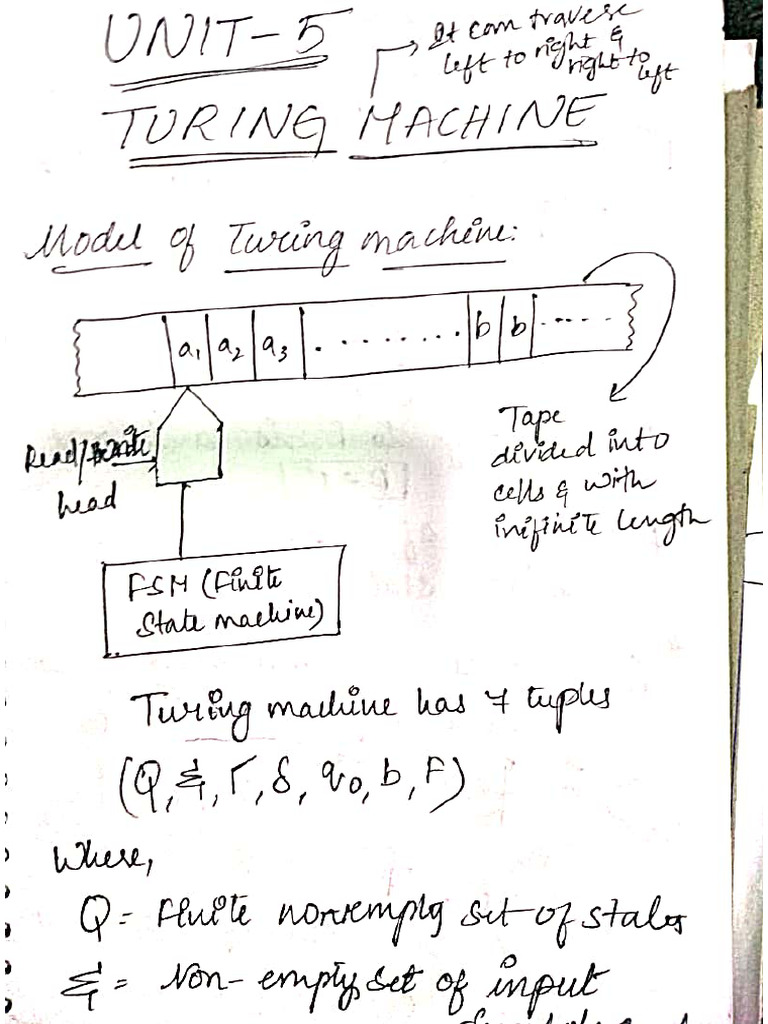 UNIT-5
It can travese
left to right &
right to left
TURING MACHINE
Model of Turing machine:
a1 a2 a3 . . . . . . . . . b b . . . . .
Read/write
head
Tape
divided into
cells & with
inifinite length
FSM (Finite
State machine)
Turing machine has 7 tuples
(Q, Σ, Γ, δ, q0, b, F)
Where,
Q = Finite nonempty set of states
Σ = Non-empty set of input